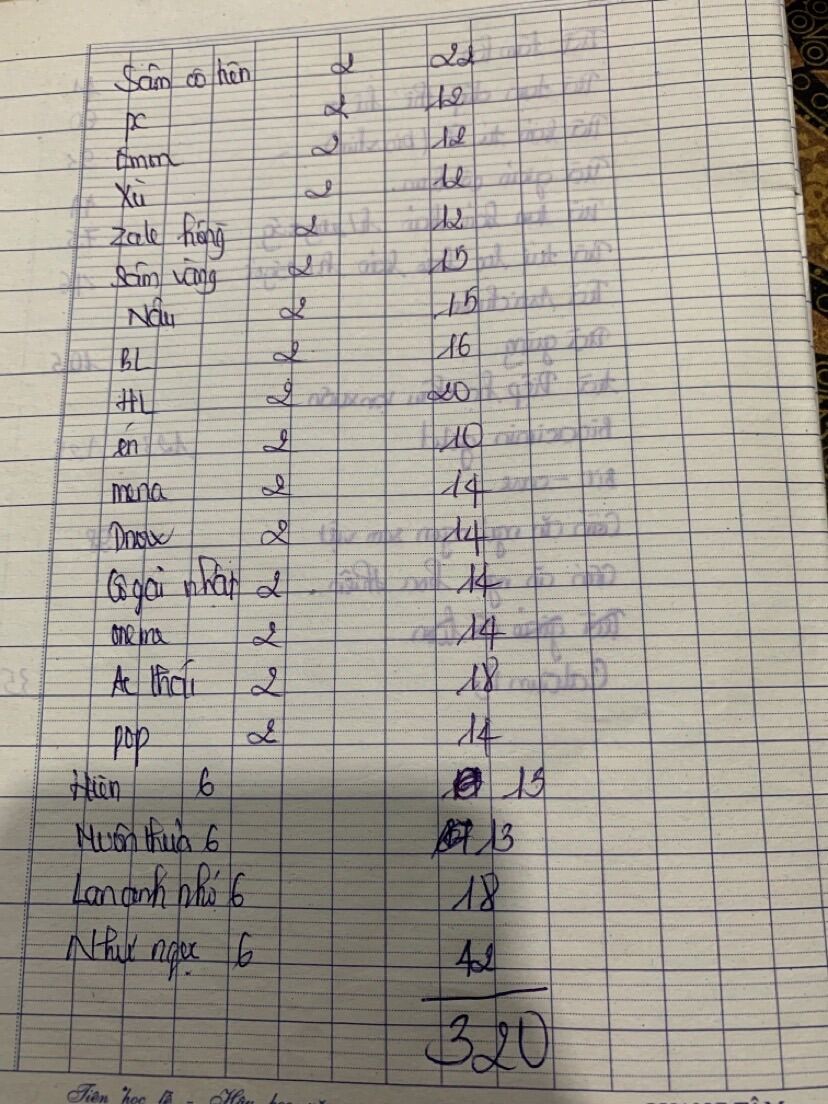 Sâm cô tiên 2 22
pc 2 12
2 12
Xù 2 12
Zale hồng 2 12
Sâm vàng 2 15
Nâu 2 15
BL 2 16
HL 2 20
én 2 10
mena 2 14
Dnox 2 14
Cô gái nhật 2 14
onema 2 14
Ac thái 2 18
pop 2 14
Hiên 6 13
Muôn thuở 6 13
Lan anh nhỏ 6 18
Như ngọc 6 42
320
Tiên học lễ - Hậu học